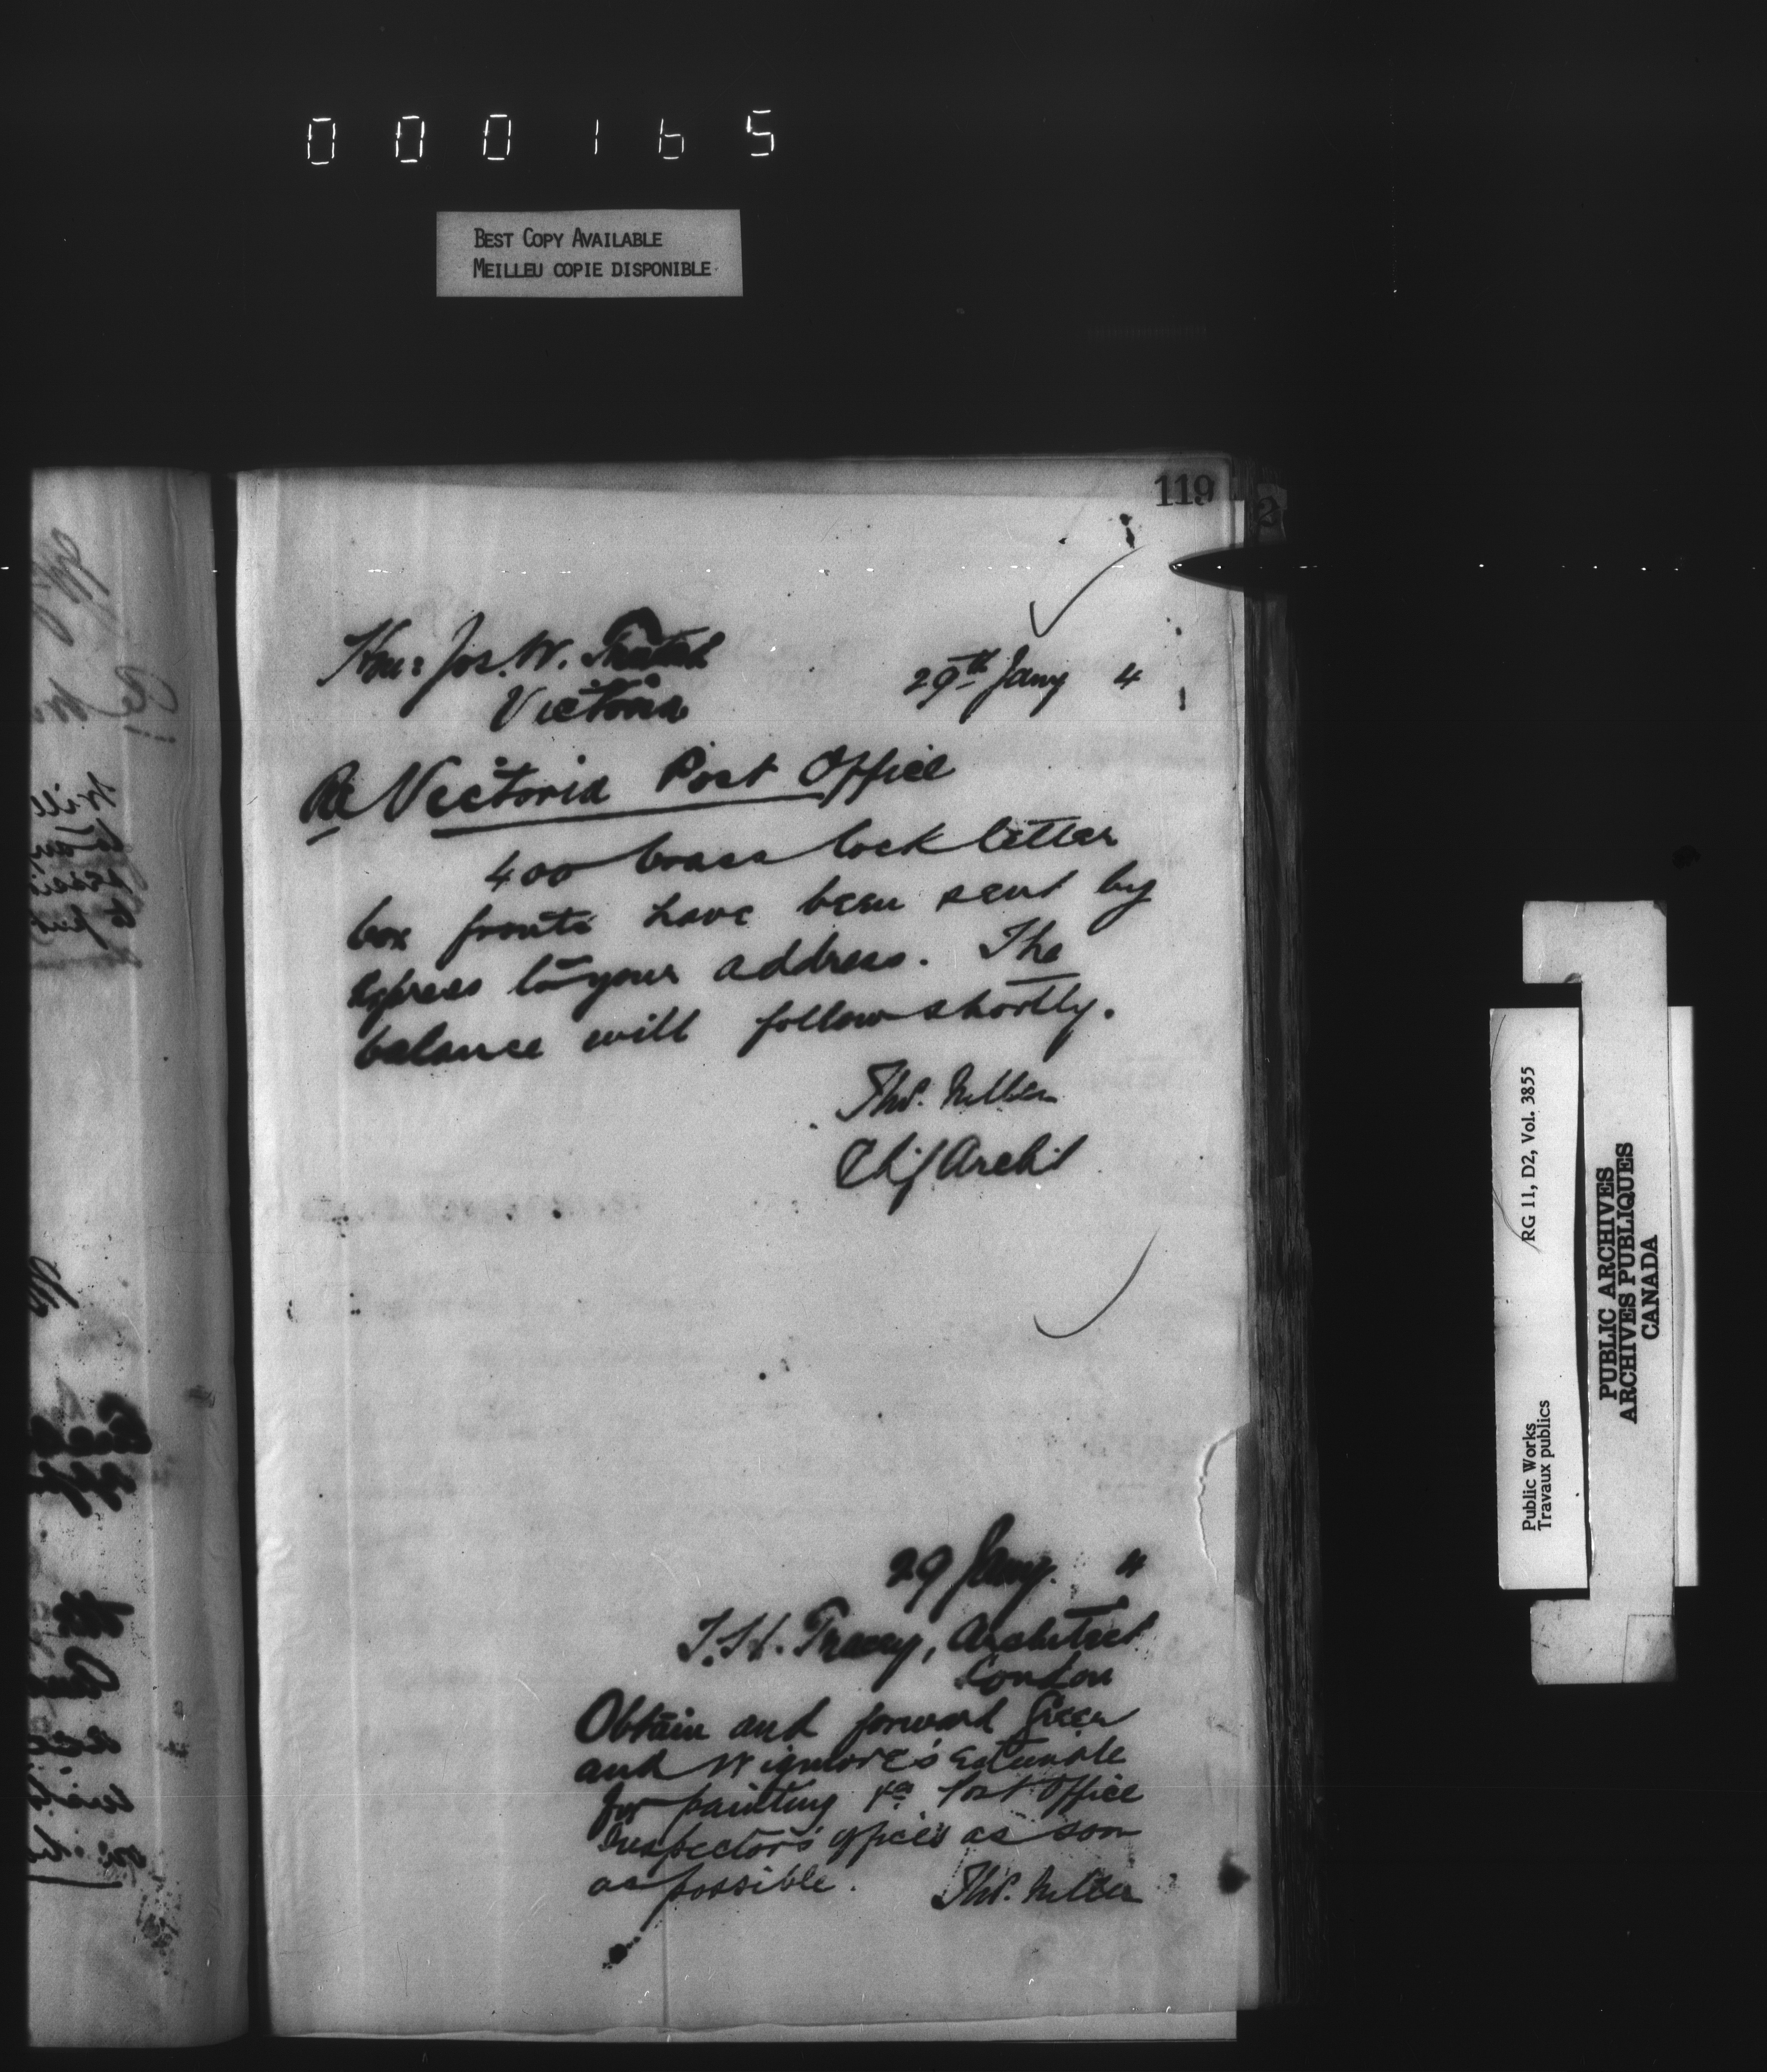 000165
BEST COPY AVAILABLE
MEILLEU COPIE DISPONIBLE
119
Hon: Jos. W. Trutch
Victoria
29th Jany 4
Re Victoria Post Office
400 brass lock letter
box fronts have been sent by
express to your address. The
balance will follow shortly.
Thos. Fuller
Chf Archt
29 Jany. 4
T. H. Tracy, Architect
London
Obtain and forward Green
and Wigmore's Estimate
for painting &ca Post Office
Inspector's offices as soon
as possible.
Thos. Fuller
Public Works
Travaux publics
RG 11, D2, Vol. 3855
PUBLIC ARCHIVES
ARCHIVES PUBLIQUES
CANADA